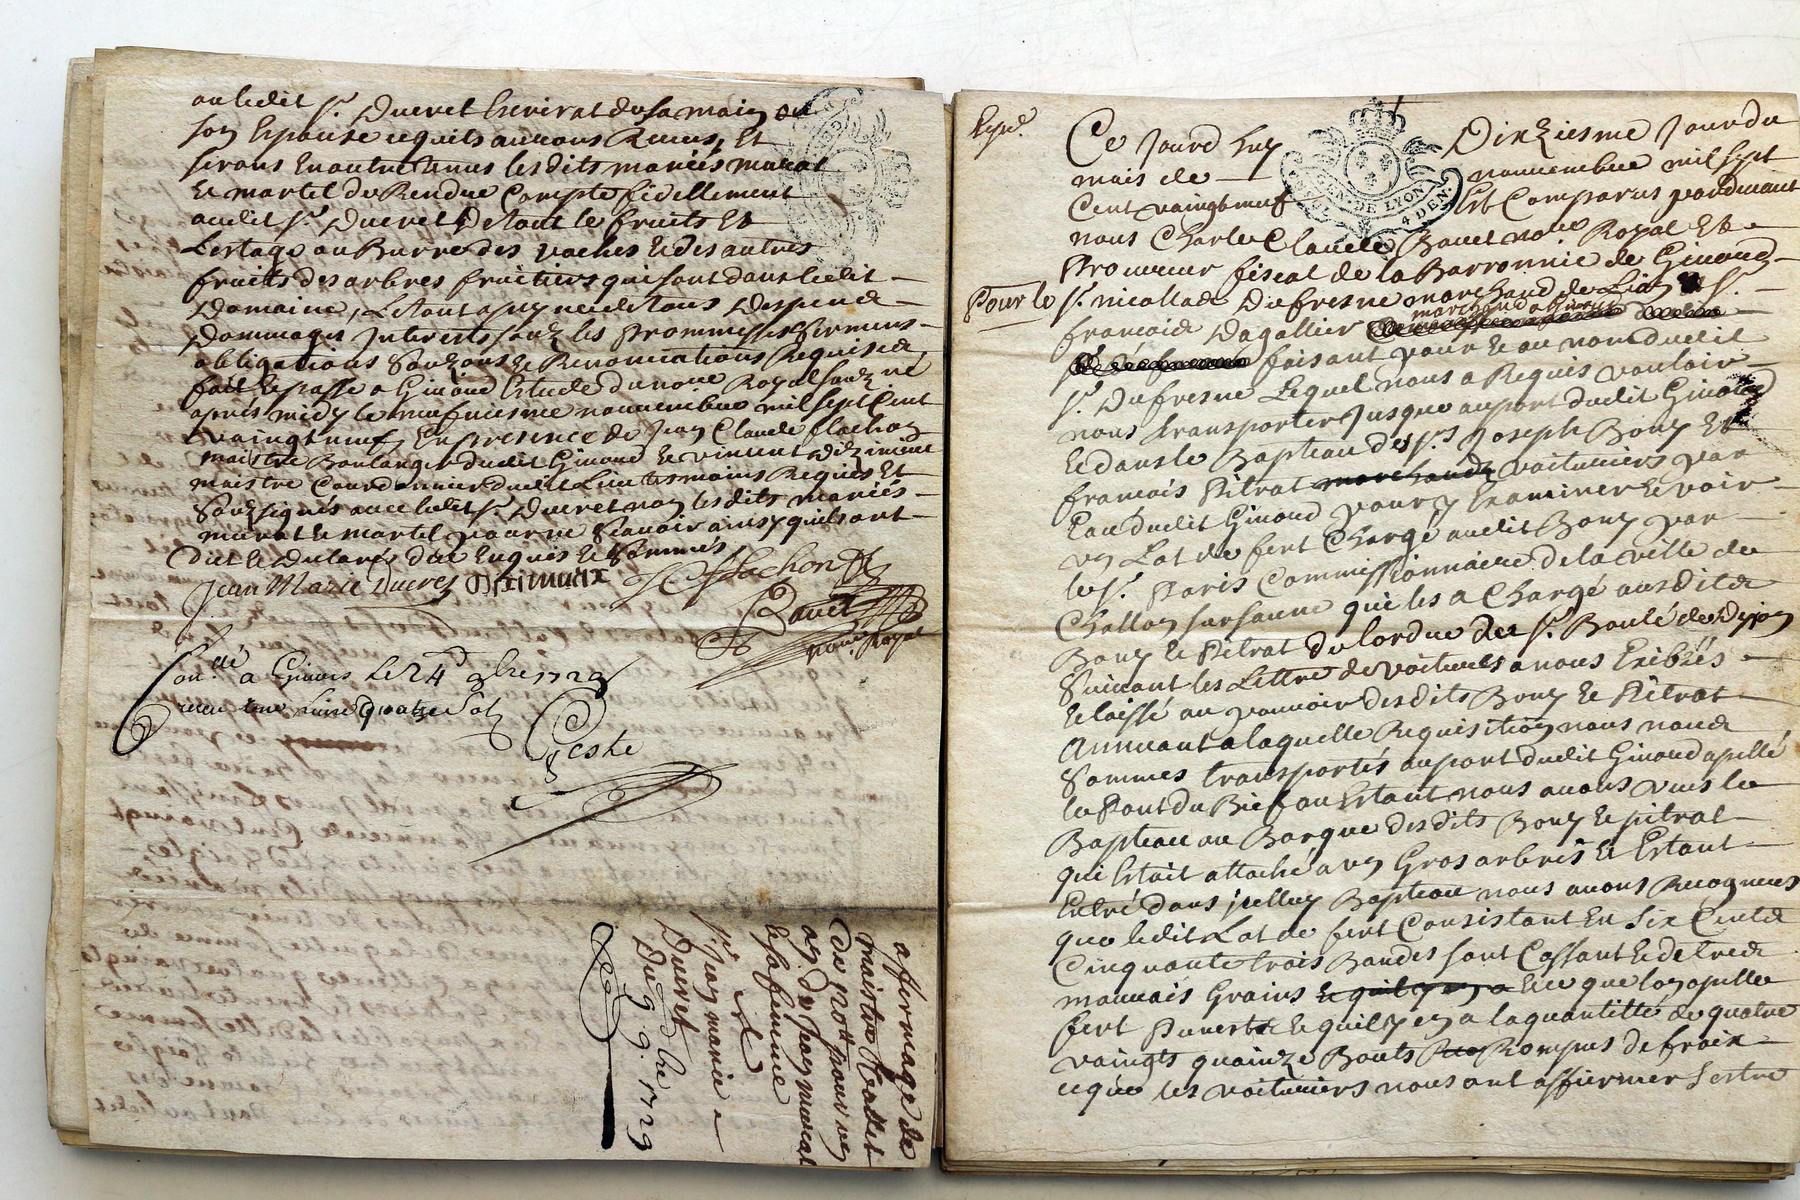 ou ledit Sr. Ducret Escrirat de sa main ou
son Epouse cequils auront Receus, Et
seront Enoutre tenus lesdits mariés murat
Et martel de Rendre Compte fidellement
audit Sr. Ducret De tout le fruits Et
Lestage ou Burre des vaches Et des autres
fruits des arbres fruitiers qui sont dans ledit
Domaine, Le tout a peyne de tous Despens
Dommages Interests soubz les Promesses serments
obligations Soubzons Et Renonciations Requises
fait Et passé a Givord Estude du note Royal soubzné
apres midy le neufviesme novembre mil sept Cent
vaingt neuf, En presence de Jean Claude flachon
maistre Boulanger dudit Givord Et vincent
maistre Courdonnier dudit Lieu tesmoins Requis Et
Soubzsignés avec ledit Sr. Ducret non lesdits mariés
murat Et martel pour ne Scavoir ainsy quils ont
dict Et declarés de ce Enquis Et sommés
Jean Marie Ducret J C flachon
Bouet
note Royal
Conlé a Givors le 24 9bre 1729
receu une Livre quatre Sols
Geste
affermage de
maistre vallet
de 120lt pour un
an. des Jean murat
Et sa femme
Et
Sr. Jean marie
Ducret
Du 9 9bre 1729
Expé.
Ce Jourd huy Dixziesme Jour du
mois de novembre mil sept
Cent vaingt neuf Est Comparus pardevant
nous Charle Claude Bouet note Royal Et
Procureur fiscal de la Barronnie de Givord
Pour le Sr. nicollas Dufresne marchand de Lion Sr.
marchand
francois Dagallier
faisant pour Et au nom dudit
Sr. Dufresne Lequel nous a Requis vouloir
nous transporter Jusque au port dudit Givord
Et dans le Bapteau des Srs Joseph Bony Et
francois Pitrat marchands voituriers par
Eau dudit Givord pour y Examiner Et voir
un Lot de fert Chargé audit Bony par
le Sr. Paris Commissionnaire de la ville de
Challon sur saune qui les a Chargé ausdits
Bony Et Pitrat de lordre des Sr. Boulé de Dijon
Suivant les Lettre de voitures a nous Exibés
Et laissé au pouvoir desdits Bony Et Pitrat
Annuant a laquelle Requisition nous nous
Sommes transportés au port dudit Givord apellé
le Pont du Bief ou Estant nous avons vus le
Bapteau ou Barque desdits Bony Et pitrat
qui Estait attaché a un Gros arbres Et Estant
Entré dans jcelluy Bapteau nous avons Recogneus
que ledit Lot de fert Consistant En six Cents
Cinquante trois Bandes sont Cassant Et de tres
mauvais Grains Et quil y en a Et ce que lon apelle
fert Et quil y en a la quantitté de quatre
vaingts quainze Bouts Rompus de froix
ceque les voituriers nous ont affirmer Lestre